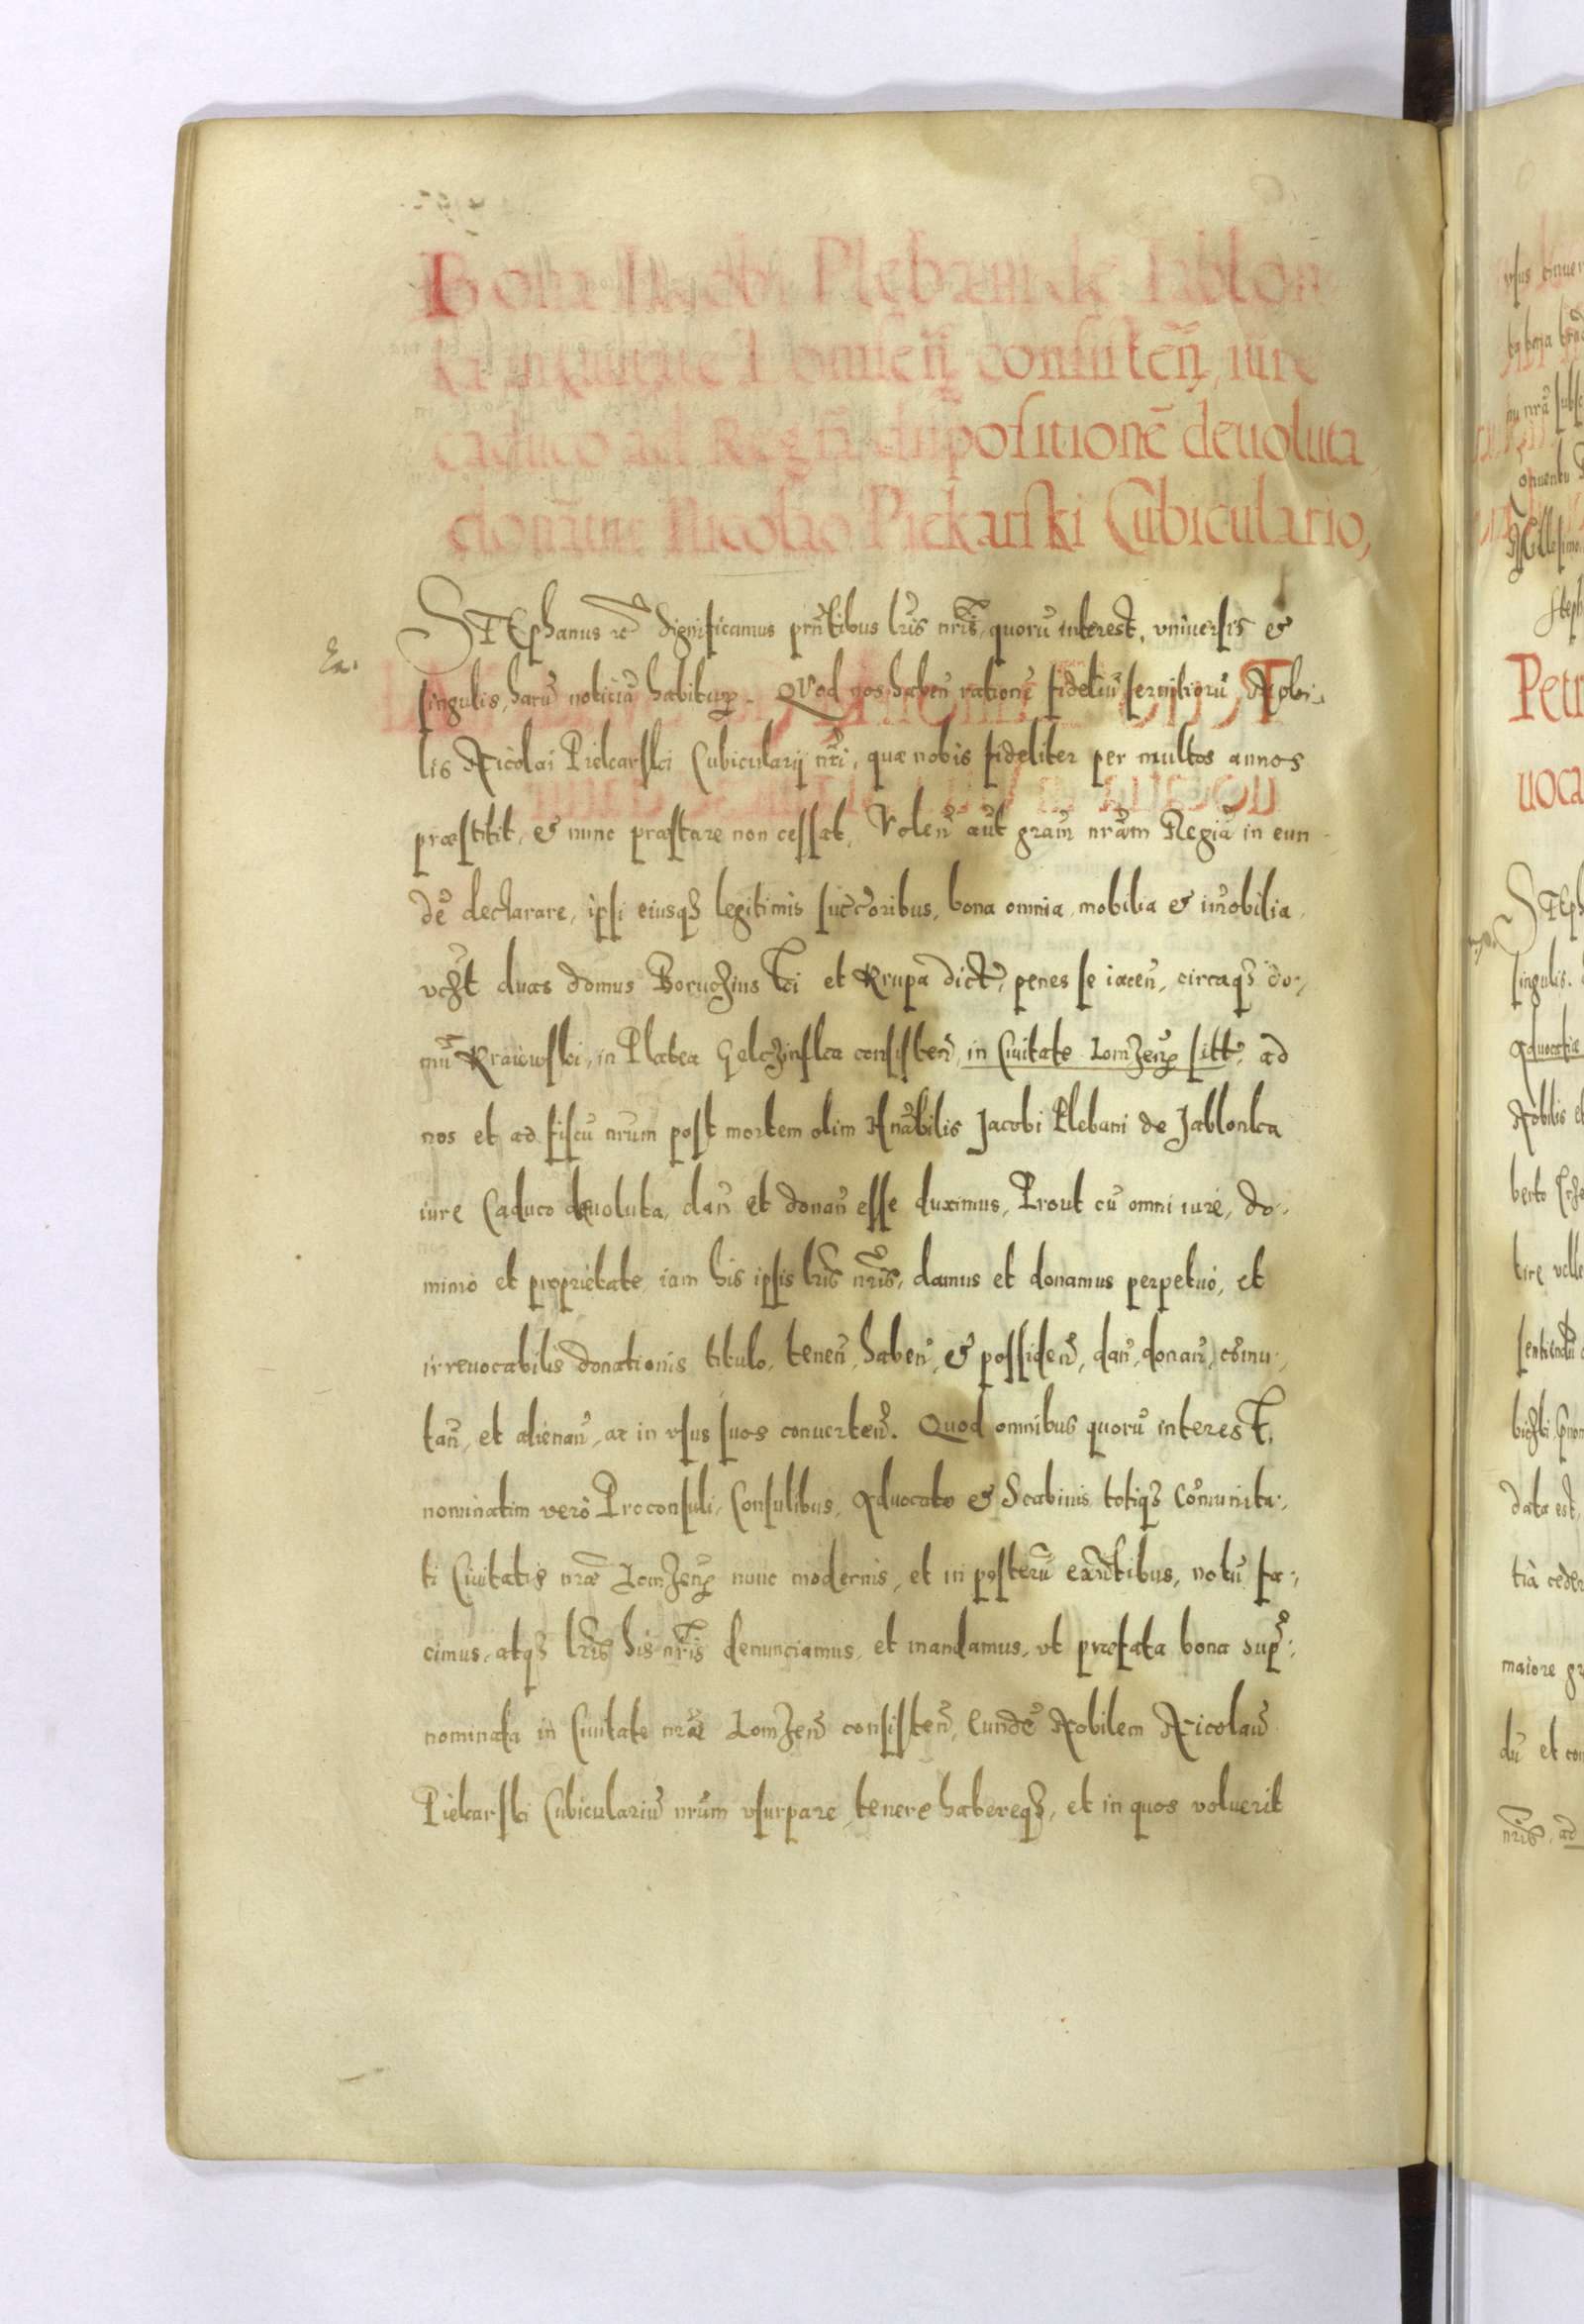 Bona Jacobi Plebani de Iablon
ki in Ciuitate Lomzen̄ consisten̄, iure
caduco ad Regiā dispositionē deuoluta,
donāt̄ Nicolao Piekarski Cubiculario,
STEphanus etc̄ Significamus prn̄tibus lr̄is nr̄is, quorū interest, vniuersis &
singulis, harū noticiā habituris. QVod nos haben̄ rationē fideliū seruitiorū Nobi-
lis Nicolai Piekarski Cubicularij nr̄i, quæ nobis fideliter per multos annos
præstitit, & nunc præstare non cessat, Volen̄ aūt gram̄ nrām Regiā in eun-
dē declarare, ipsi eiusqꝫ legitimis succ̄oribus, bona omnia, mobilia & im̄obilia,
vcꝫt duas domus Boruchinski et Krupa dict̄, penes se iacen̄, circaqꝫ do-
mū Kraiewski, in Platea Gelczinska consisten̄, in Ciuitate Lomzen̄ sitt̄, ad
nos et ad fiscū nrum post mortem olim Hnābilis Jacobi Plebani de Jablonka
iure Caduco deuoluta, dan̄ et donan̄ esse duximus, Prout cū omni iure, do-
minio et proprietate, iam his ipsis lr̄is nr̄is, damus et donamus perpetuò, et
irreuocabilis donationis titulo, tenen̄, haben̄, & possiden̄, dan̄, donan̄, cōmu-
tan̄, et alienan̄, ac in vsus suos conuerten̄. Quod omnibus quorū interest,
nominatim verò Proconsuli, Consulibus, Aduocato & Scabinis totiqꝫ Com̄unita-
ti Ciuitatis nræ Lomzen̄ nunc modernis, et in posterū exn̄tibus, notū fa-
cimus, atqꝫ lr̄is his nr̄is denunciamus, et mandamus, vt præfata bona sup̄-
nominata in Ciuitate nrā Lomzen̄ consisten̄, Eundē Nobilem Nicolaū
Piekarski Cubiculariū nrum vsurpare, tenere habereqꝫ, et in quos voluerit